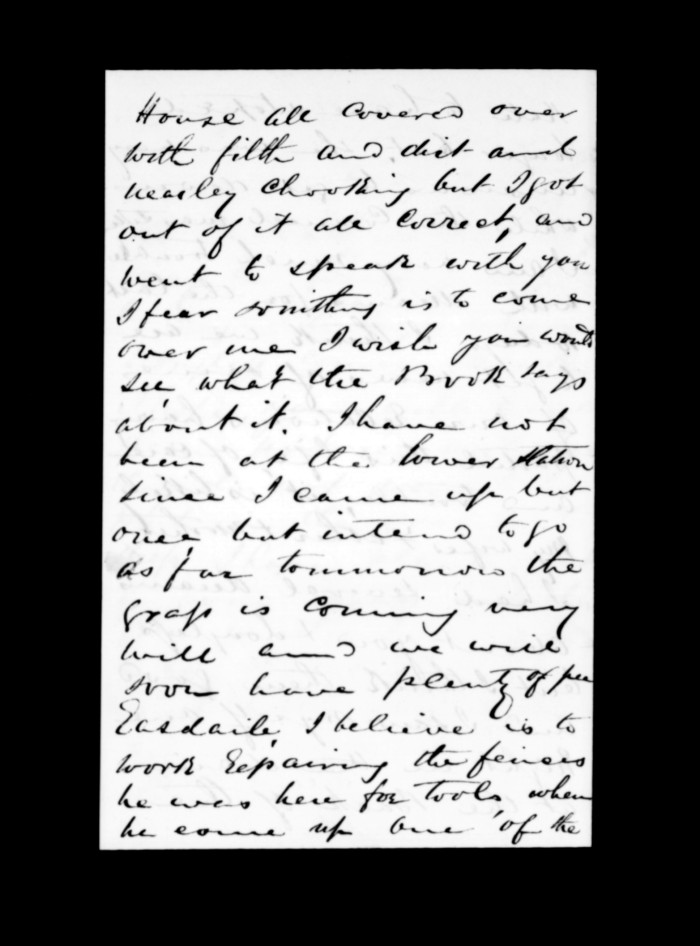 House all covered over
with filth and dirt and
neasley chooking but I got
out of it all correct, and
went to speak with you
I fear somithing is to come
over me I wish you would
see what the Brook says
about it. I have not
been at the lower station
since I came up but
once, but intend to go
as far tommorrow the
grass is coming very
will and we will
soon have plenty of
Easdaile, I believe is to
work Repairing the fences
he was here for tools, when
he come up one of the